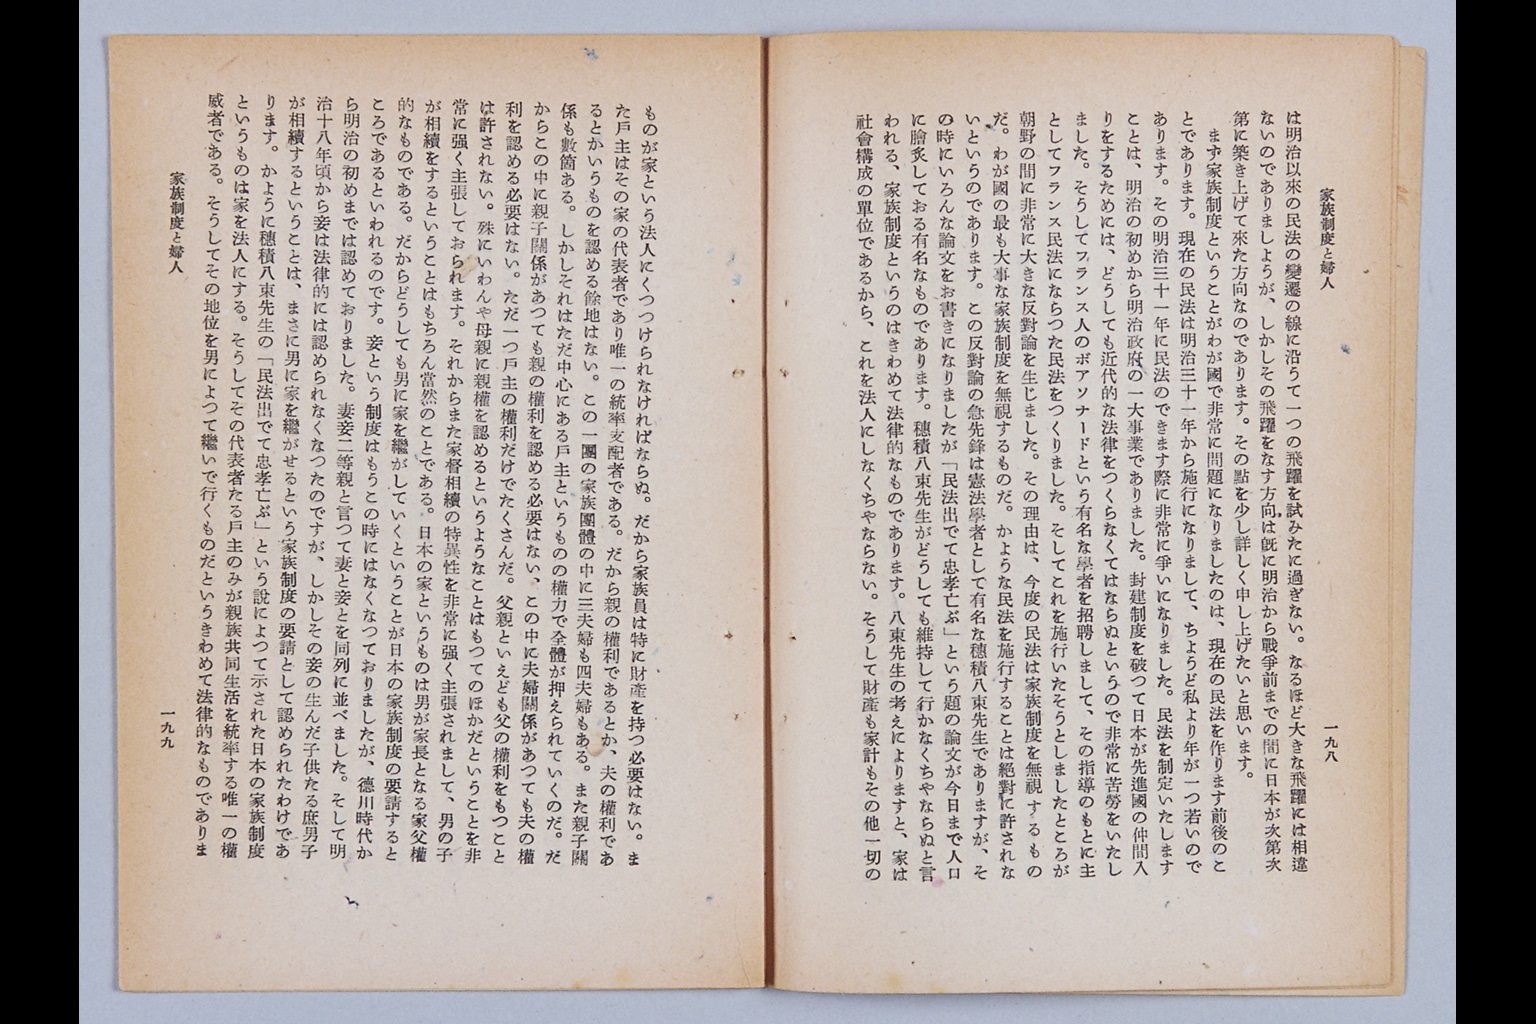 家族制度と婦人
一九八
は明治以來の民法の變遷の線に沿うて一つの飛躍を試みたに過ぎない。なるほど大きな飛躍には相違
ないのでありましようが、しかしその飛躍をなす方向は既に明治から戰爭前までの間に日本が次第次
第に築き上げて來た方向なのであります。その點を少し詳しく申し上げたいと思います。
まず家族制度ということがわが國で非常に問題になりましたのは、現在の民法を作ります前後のこ
とであります。現在の民法は明治三十一年から施行になりまして、ちようど私より年が一つ若いので
あります。その明治三十一年に民法のできます際に非常に爭いになりました。民法を制定いたします
ことは、明治の初めから明治政府の一大事業でありました。封建制度を破つて日本が先進國の仲間入
りをするためには、どうしても近代的な法律をつくらなくてはならぬというので非常に苦勞をいたし
ました。そうしてフランス人のボアソナードという有名な學者を招聘しまして、その指導のもとに主
としてフランス民法にならつた民法をつくりました。そしてこれを施行いたそうとしましたところが
朝野の間に非常に大きな反對論を生じました。その理由は、今度の民法は家族制度を無視するもの
だ。わが國の最も大事な家族制度を無視するものだ。かような民法を施行することは絕對に許されな
いというのであります。この反對論の急先鋒は憲法學者として有名な穗積八束先生でありますが、そ
の時にいろんな論文をお書きになりましたが「民法出でて忠孝亡ぶ」という題の論文が今日まで人口
に膾炙しておる有名なものであります。穗積八束先生がどうしても維持して行かなくちやならぬと言
われる、家族制度というのはきわめて法律的なものであります。八束先生の考えによりますと、家は
社會構成の單位であるから、これを法人にしなくちやならない。そうして財產も家計もその他一切の
ものが家という法人にくつつけられなければならぬ。だから家族員は特に財產を持つ必要はない。ま
た戶主はその家の代表者であり唯一の統率支配者である。だから親の權利であるとか、夫の權利であ
るとかいうものを認める餘地はない。この一團の家族團體の中に三夫婦も四夫婦もある。また親子關
係も數箇ある。しかしそれはただ中心にある戶主というものの權力で全體が押えられていくのだ。だ
からこの中に親子關係があつても親の權利を認める必要はない、この中に夫婦關係があつても夫の權
利を認める必要はない。ただ一つ戶主の權利だけでたくさんだ。父親といえども父の權利をもつこと
は許されない。殊にいわんや母親に親權を認めるというようなことはもつてのほかだということを非
常に强く主張しておられます。それからまた家督相續の特異性を非常に强く主張されまして、男の子
が相續をするということはもちろん當然のことである。日本の家というものは男が家長となる家父權
的なものである。だからどうしても男に家を繼がしていくということが日本の家族制度の要請すると
ころであるといわれるのです。妾という制度はもうこの時にはなくなつておりましたが、德川時代か
ら明治の初めまでは認めておりました。妻妾二等親と言つて妻と妾とを同列に並べました。そして明
治十八年頃から妾は法律的には認められなくなつたのですが、しかしその妾の生んだ子供たる庶男子
が相續するということは、まさに男に家を繼がせるという家族制度の要請として認められたわけであ
ります。かように穗積八束先生の「民法出でて忠孝亡ぶ」という說によつて示された日本の家族制度
というものは家を法人にする。そうしてその代表者たる戶主のみが親族共同生活を統率する唯一の權
威者である。そうしてその地位を男によつて繼いで行くものだというきわめて法律的なものでありま
家族制度と婦人
一九九